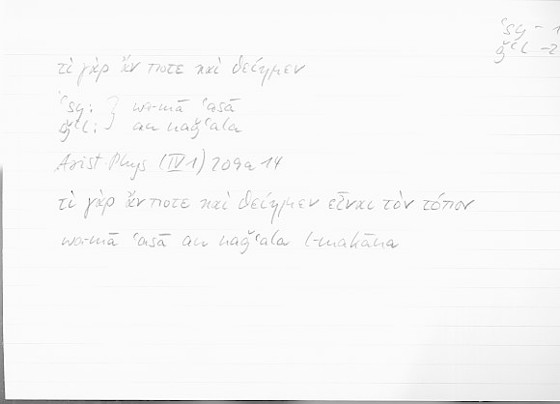 ʿsy – 1
ǧʿl – 2
τί γὰρ ἄν ποτε καὶ θείημεν
ʿsy: } wa-mā ʿasā
ǧʿl: } an naǧʿala
Arist Phys (IV 1) 209a 14
τί γὰρ ἄν ποτε καὶ θείημεν εἶναι τὸν τόπον
wa-mā ʿasā an naǧʿala l-makāna